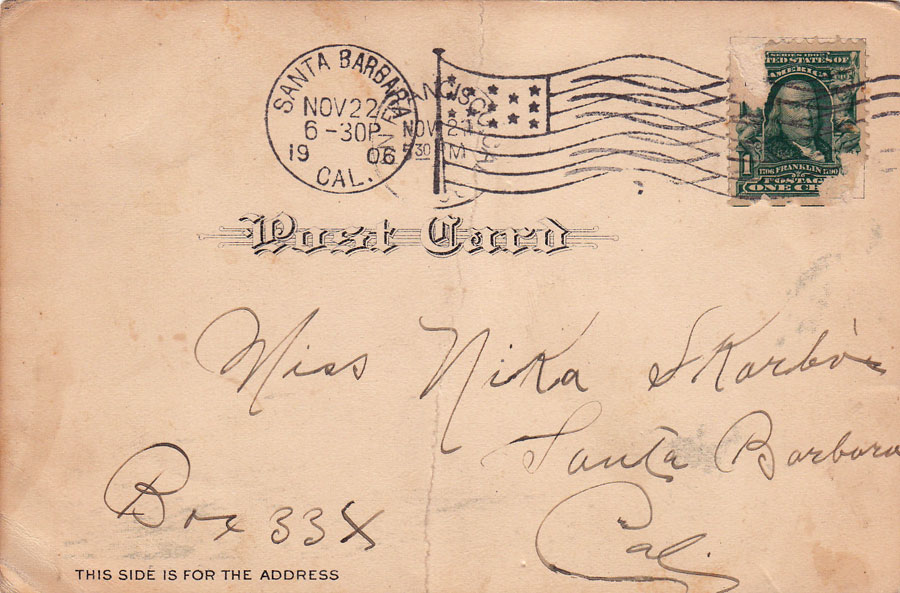 SANTA BARBARA
NOV 22
6-30P
1906
CAL.
NCISCO, CA
NOV 21
5 30 M
SERIES 1902
UNITED STATES OF
AMERICA
1706 FRANKLIN 1790
1 POSTAG
ONE CE
Post Card
Miss Nika Skarbo
Santa Barbara
Cal.
Box 334
THIS SIDE IS FOR THE ADDRESS